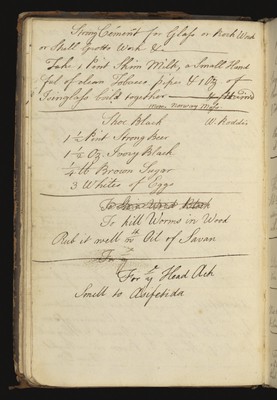 Strong Cement for Glass or Rock Work
or Shell Grotto Work &c
Take 1 Pint Skim Milk, a Small Hand
ful of clean Tobacco pipe & 1 Oz of
Isinglass boild together
Shoe Black W. Roddis
1 ½ Pint Strong Beer
1 ½ Oz Ivory Black
¼ lb Brown Sugar
3 Whites of Eggs
To kill Worms in Wood
Rub it well wth Oil of Savan
For ye Head Ach
Smell to Asefetida